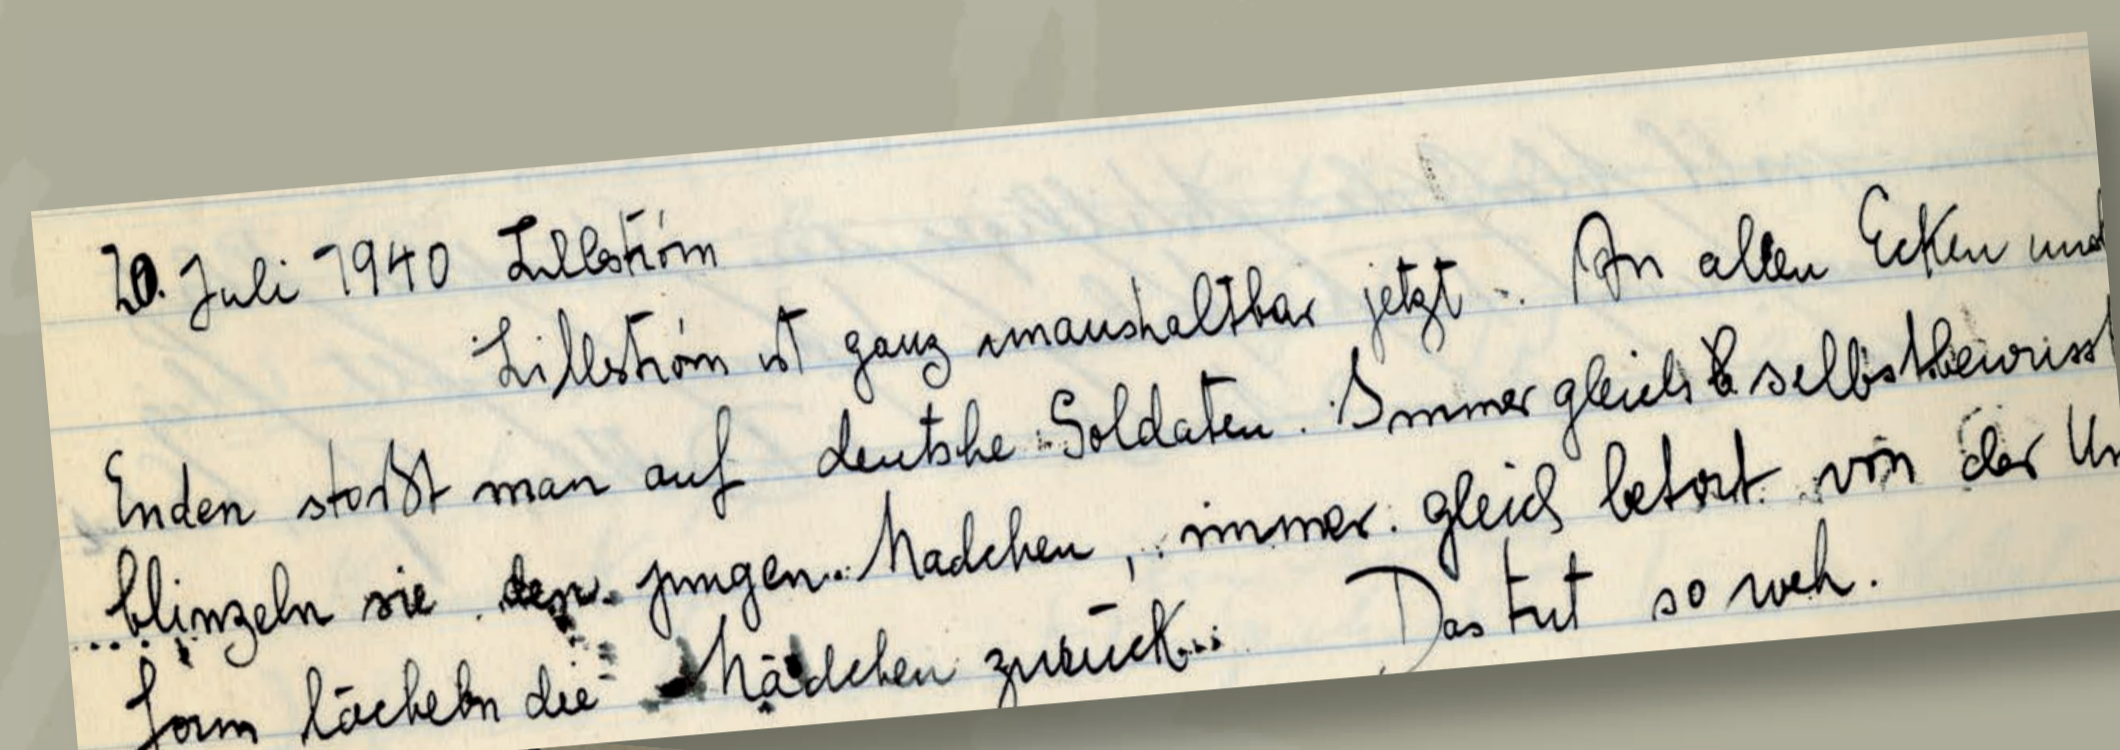 20. Juli 1940 Lillström
Lillström ist ganz unaushaltbar jetzt. An allen Ecken und
Enden stoßt man auf deutshe Soldaten. Immer gleich selbstbewusst
blinzeln sie den jungen Mädchen, immer gleich betört von der Un
form lächeln die Mädchen zurück... Das tut so weh.